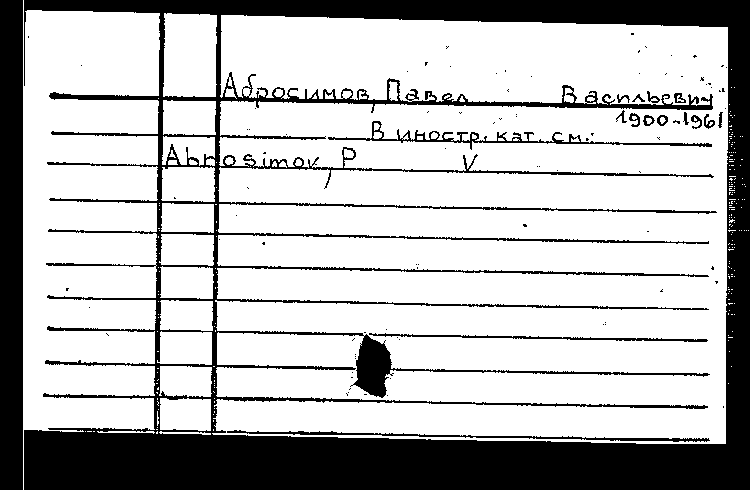 Абросимов, Павел Васильевич
1900-1961
В иностр. кат. см.:
Abrosimov, P V